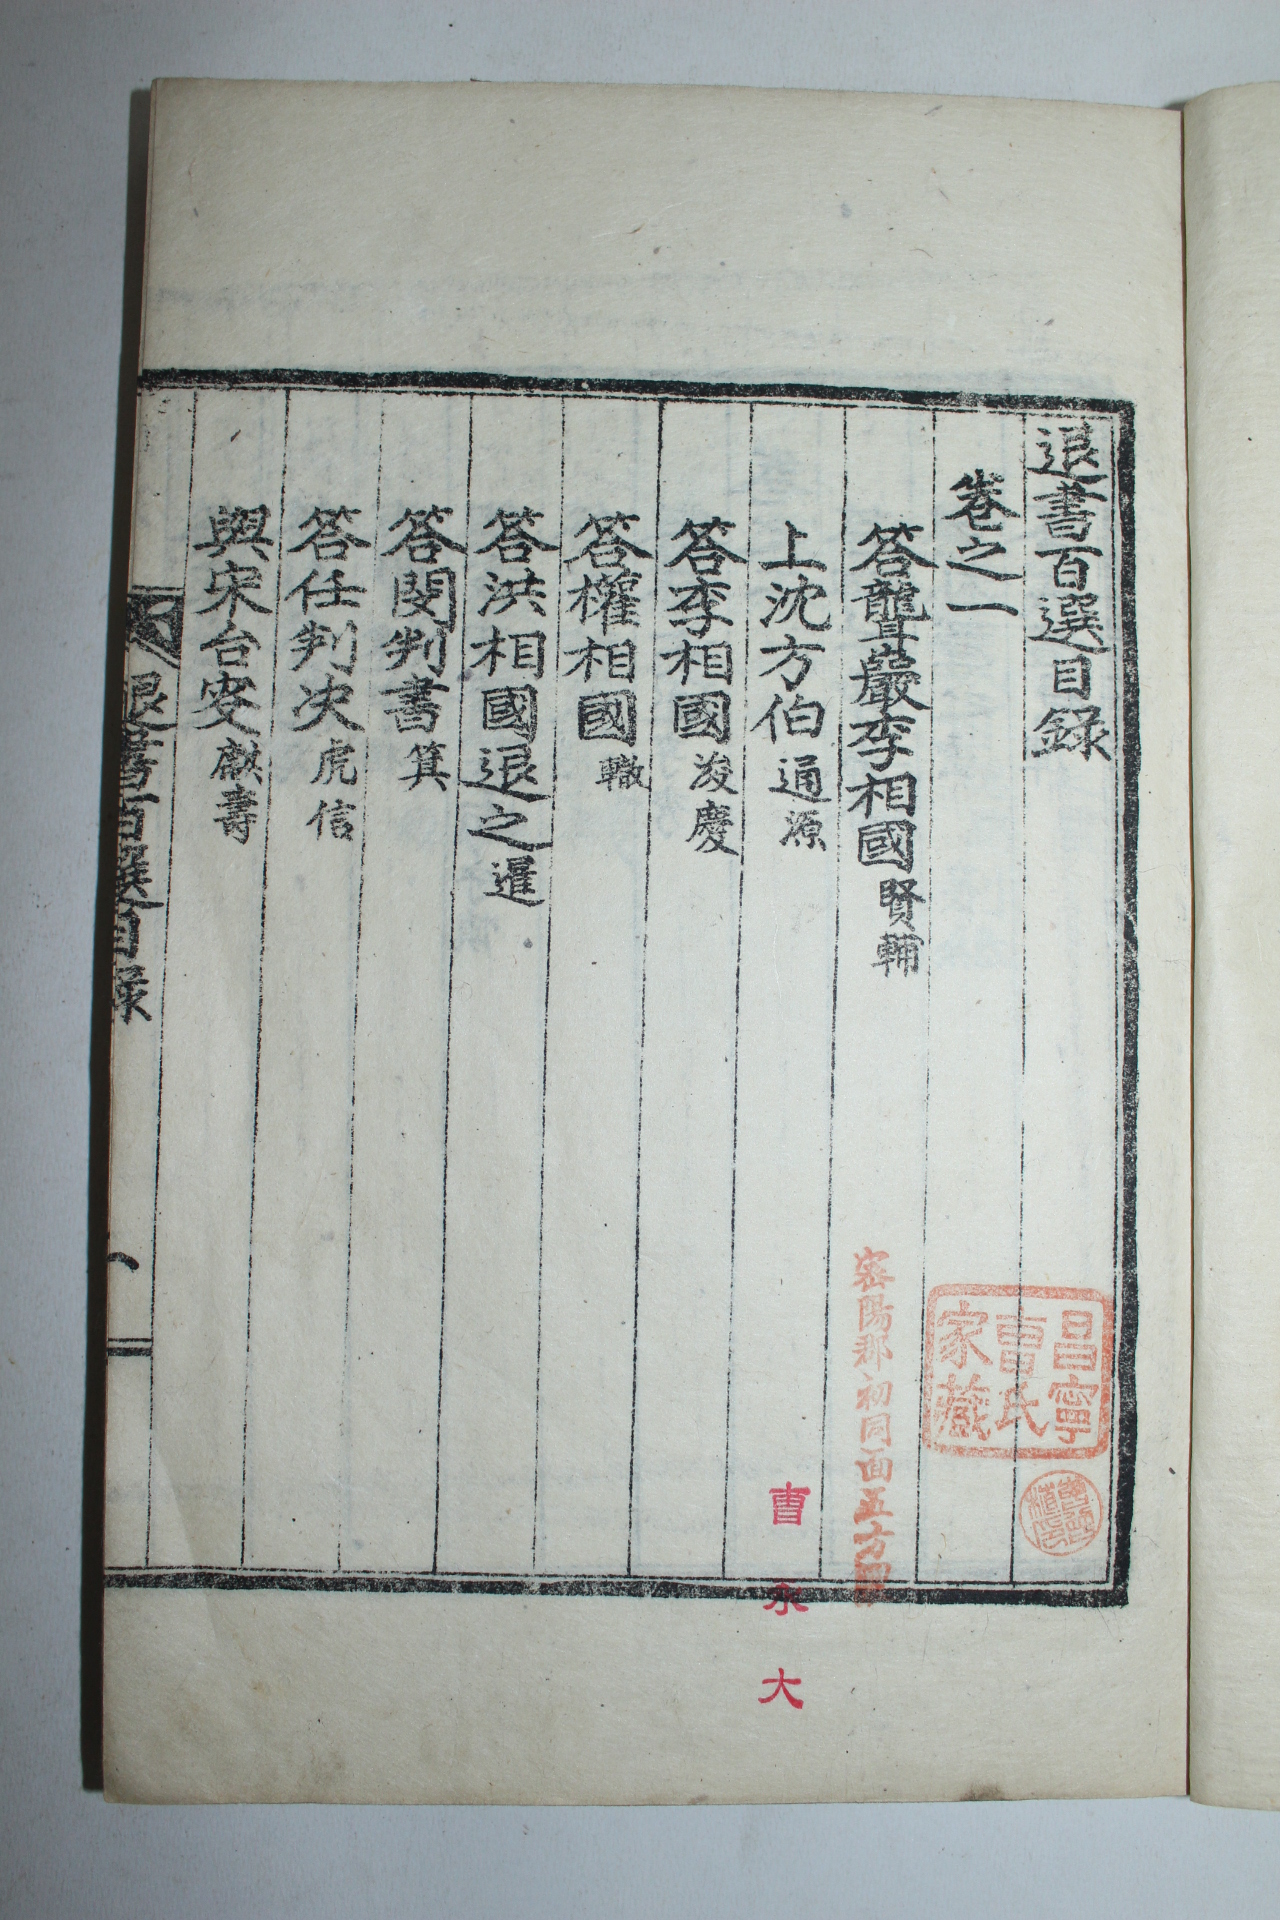 退書百選目錄
卷之一
答聾巖李相國賢輔
上沈方伯通源
答李相國浚慶
答權相國轍
答洪相國退之暹
答閔判書箕
答任判决虎信
與宋台叟麒壽
退書百選目錄
昌寧
曺氏
家藏
密陽郡初同面五方
曺永大